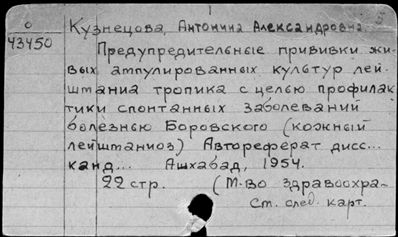 О
43450
Кузнецова, Антонина Александровна.
Предупредительные прививки жи-
вых ампулированных культур лей-
штаниа тропика с целью профилак
тики спонтанных заболеваний
болезнью Боровского (кожный
лейштаниоз) Автореферат дисс...
канд... Ашхабад, 1954.
22 стр. (М-во здравоохра-
См. след. карт.